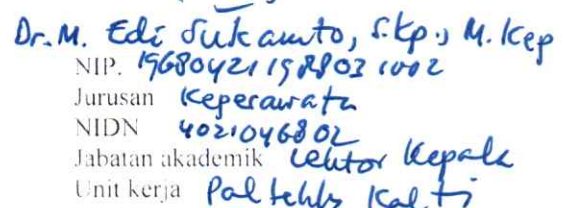 Dr. M. Edi Sukamto, S.Kp., M. Kep
NIP. 196804211988031002
Jurusan Keperawatan
NIDN 4021046802
Jabatan akademik Lektor Kepala
Unit kerja Poltekkes Kalti